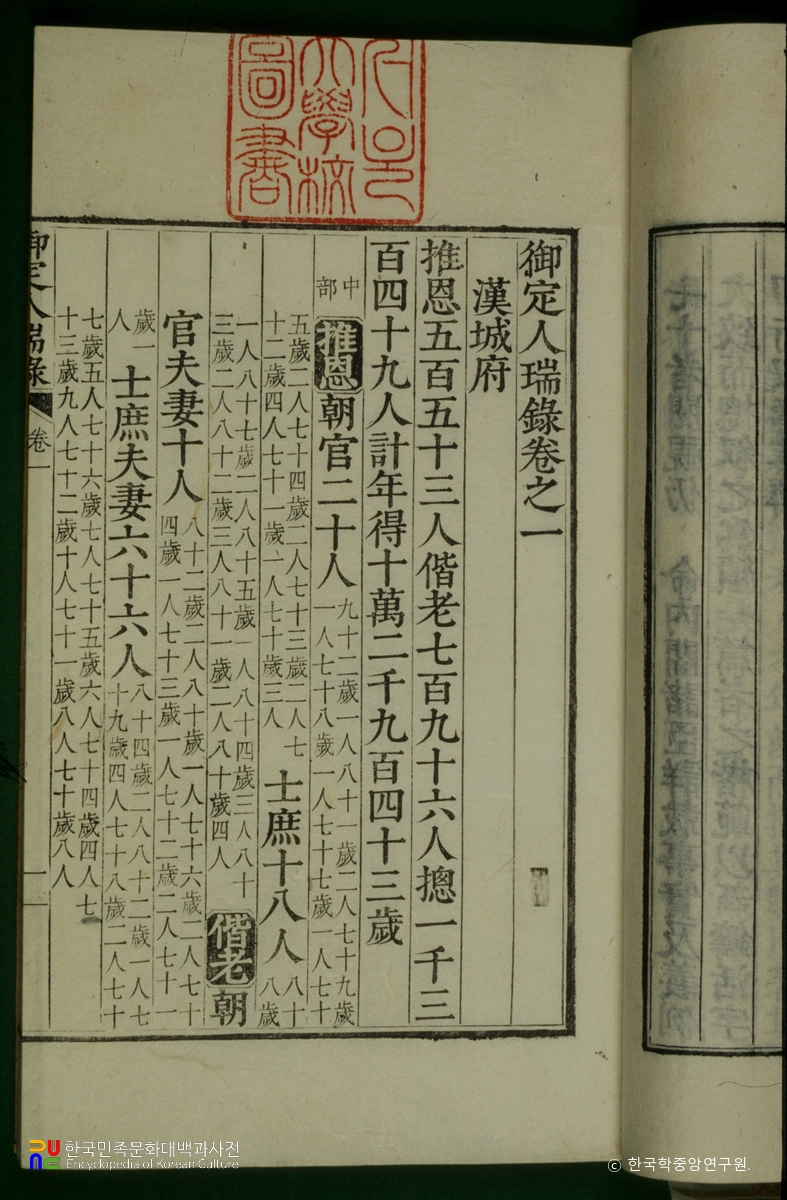 大學校
圖書
御定人瑞錄卷之一
漢城府
推恩五百五十三人偕老七百九十六人摠一千三
百四十九人計年得十萬二千九百四十三歲
中部
推恩朝官二十人
九十二歲一人八十一歲二人七十九歲
一人七十八歲一人七十七歲一人七十
五歲二人七十四歲二人七十三歲二人七
十二歲四人七十一歲一人七十歲三人
士庶十八人
八十
八歲
一人八十七歲二人八十五歲一人八十四歲三人八十
三歲二人八十二歲三人八十一歲二人八十歲四人
偕老朝
官夫妻十人
八十二歲二人八十歲一人七十六歲二人七十
四歲一人七十三歲一人七十二歲二人七十一
歲一
人
士庶夫妻六十六人
八十四歲二人八十二歲一人七
十九歲四人七十八歲二人七十
七歲五人七十六歲七人七十五歲六人七十四歲四人七
十三歲九人七十二歲十人七十一歲八人七十歲八人
御定人瑞錄 卷一 一
한국민족문화대백과사전
Encyclopedia of Korean Culture
ⓒ 한국학중앙연구원.